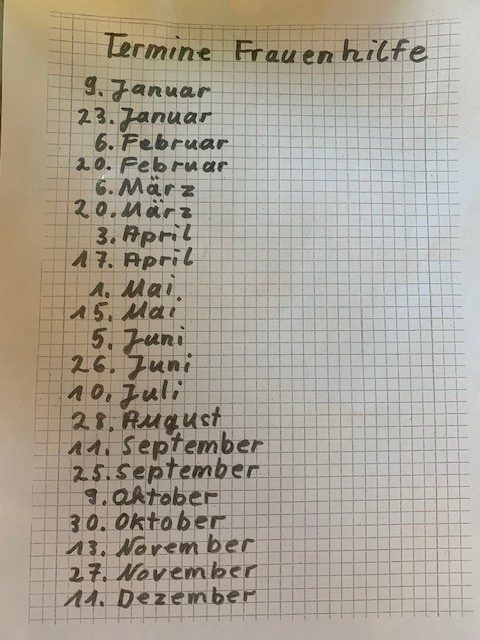 Termine Frauenhilfe
9. Januar
23. Januar
6. Februar
20. Februar
6. März
20. März
3. April
17. April
1. Mai
15. Mai
5. Juni
26. Juni
10. Juli
28. August
11. September
25. September
9. Oktober
30. Oktober
13. November
27. November
11. Dezember